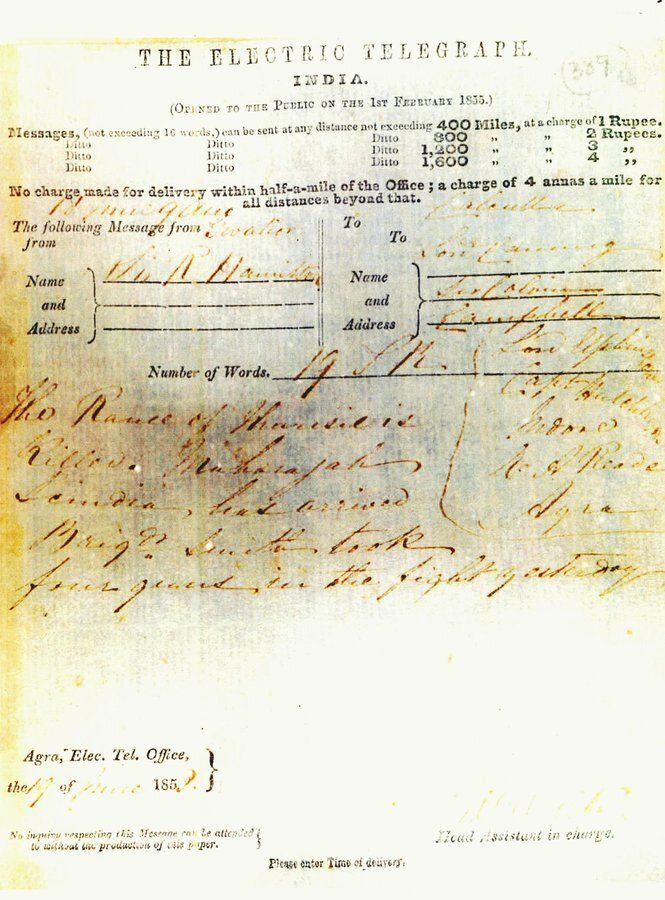 THE ELECTRIC TELEGRAPH.
INDIA.
(OPENED TO THE PUBLIC ON THE 1ST FEBRUARY 1855.)
Messages, (not exceeding 16 words,) can be sent at any distance not exceeding 400 Miles, at a charge of 1 Rupee.
Ditto Ditto Ditto 800 „ „ 2 Rupees.
Ditto Ditto Ditto 1,200 „ „ 3 „
Ditto Ditto Ditto 1,600 „ „ 4 „
No charge made for delivery within half-a-mile of the Office; a charge of 4 annas a mile for
all distances beyond that.
The following Message from Gwalior
from
To Calcutta
To Lord Canning
Name
and
Address
Sir R Hamilton
Name
and
Address
Sir Colin
Campbell
Number of Words. 19
Lord
Capt
Indore
Reade
Agra
The Ranee of Jhansie is
Killed. Maharajah
Scindia has arrived
Brigdr Smith took
four guns in the fight yesterday
Agra, Elec. Tel. Office,
the 19 of June 1858.
No inquiry respecting this Message can be attended
to without the production of this paper.
Head Assistant in charge.
Please enter Time of delivery.